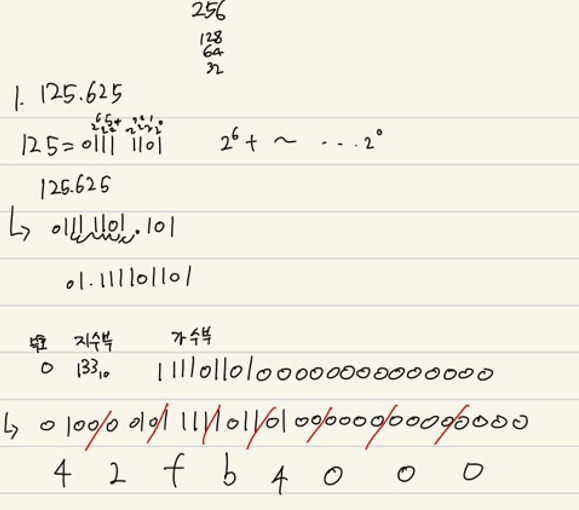 256
128
64
32
1. 125.625
125 = 0111 1101 2⁶ + ~ ... 2⁰
125.625
↳ 0111 1101.101
01.111101101
부호 지수부 가수부
0 133₁₀ 111101101000000000000000
↳ 0 100/0 010/1 111/1 011/0 1 00/0000/0000/0000
4 2 f b 4 0 0 0